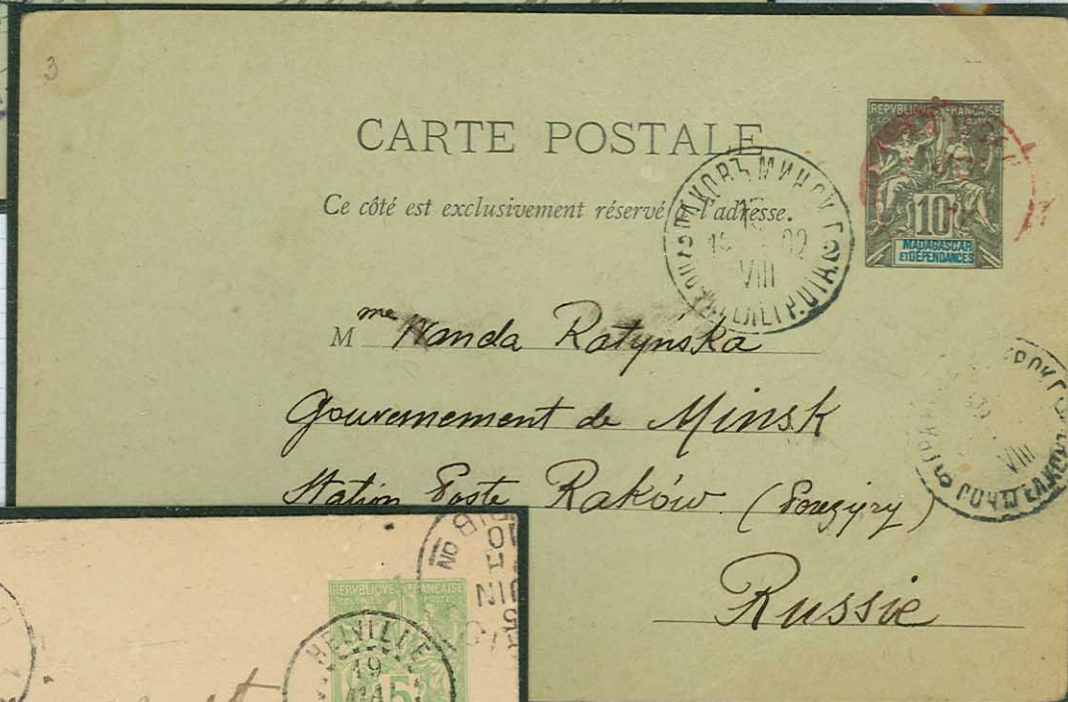 3
CARTE POSTALE
Ce côté est exclusivement réservé à l'adresse.
REPVBLIQVE FRANÇAISE
10
MADAGASCAR
ET DÉPENDANCES
РАКОВЪ МИНСК. Г.
02
VIII
Mme Wanda Ratynska
Gouvernement de Minsk
Station Poste Raków
Russie
VIII
REPVBLIQVE FRANÇAISE
HELVILLE
19
MAI
5
10
JUIN